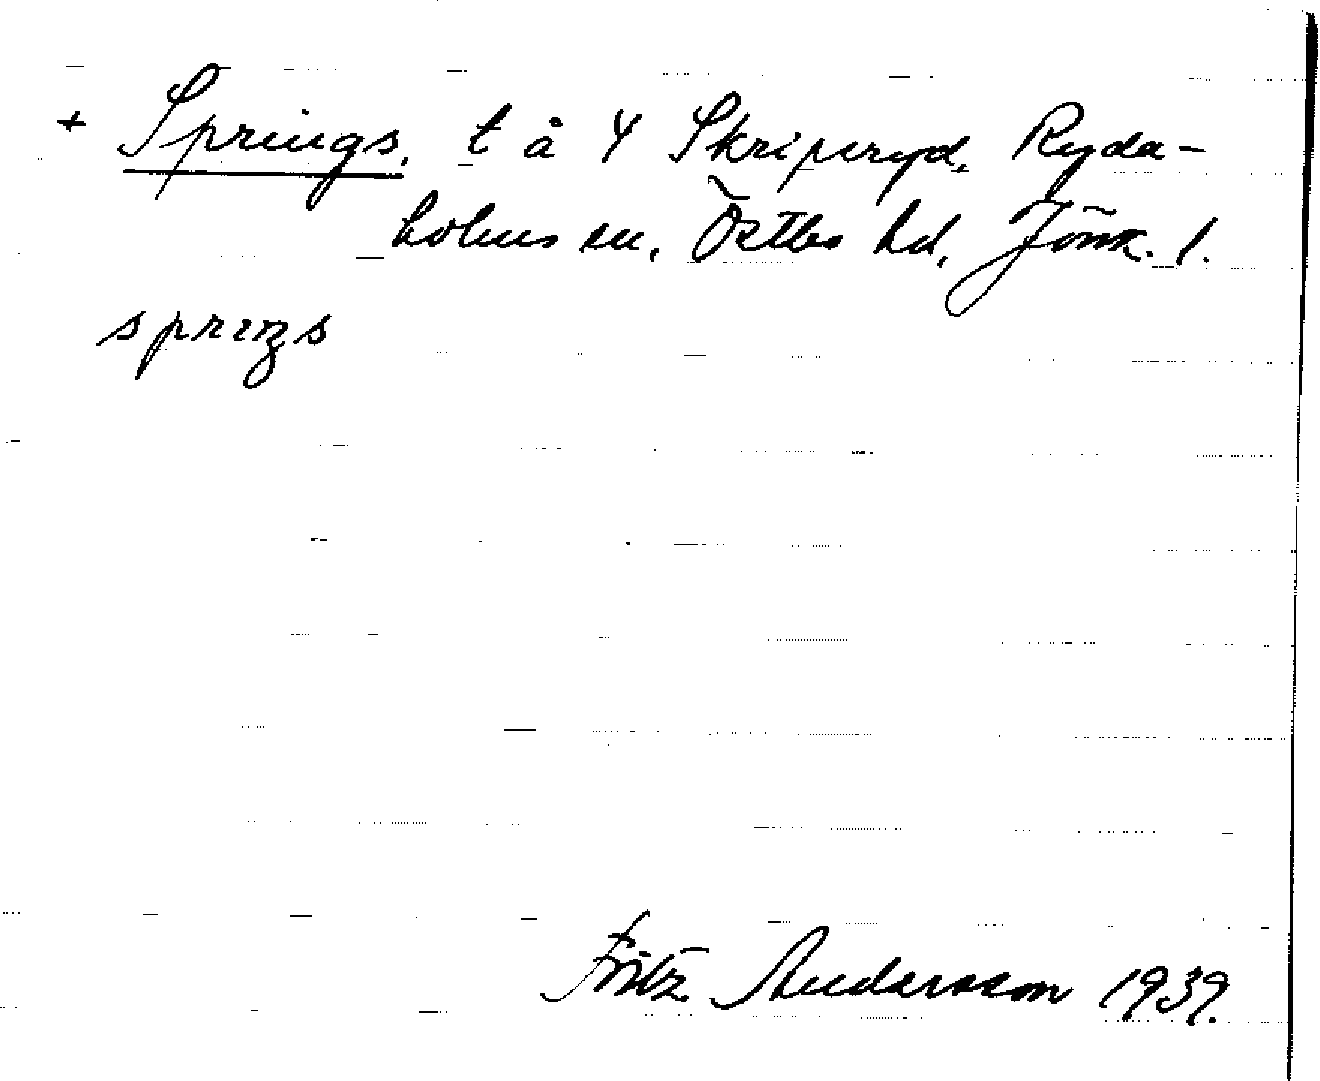 + Springs, t å Y Skriperyd, Ryda-
holms sn, Östbo hd, Jönk. l.
sprıŋs
Fritz Andersson 1939.